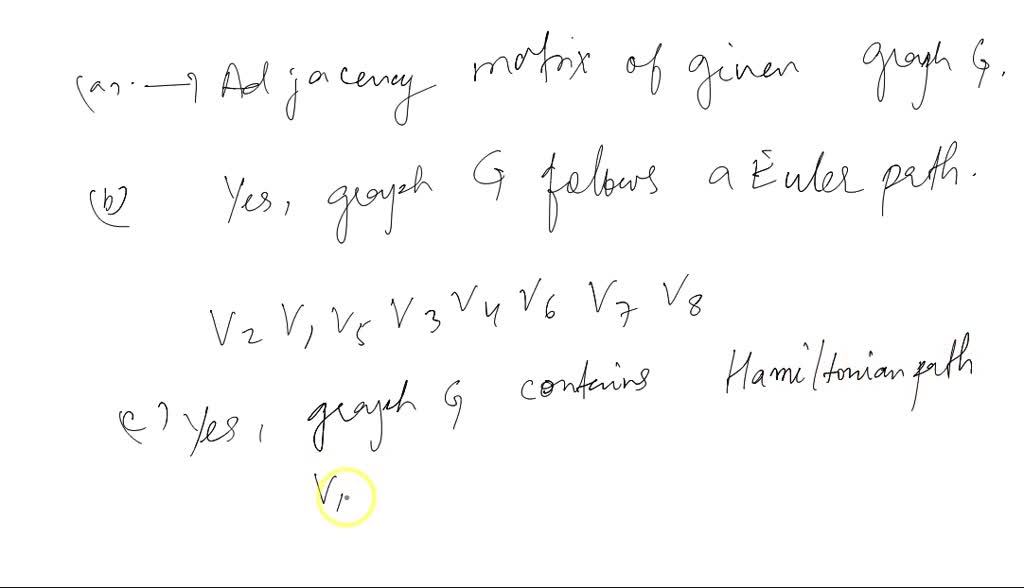 (a). → Adjacency matrix of given graph G.
(b) Yes, graph G follows a Euler path.
V2 V1 V5 V3 V4 V6 V7 V8
(c) Yes, graph G contains Hamiltonian path
V1